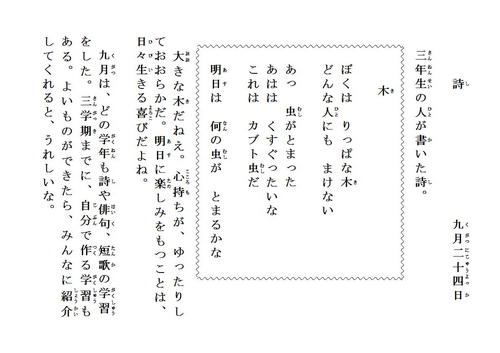 詩
九月二十四日
三年生の人が書いた詩。
木
ぼくは りっぱな木
どんな人にも まけない
あっ 虫がとまった
あはは くすぐったいな
これは カブト虫だ
明日は 何の虫が とまるかな
大きな木だねえ。心持ちが、ゆったりし
ておおらかだ。明日に楽しみをもつことは、
日々生きる喜びだよね。
九月は、どの学年も詩や俳句、短歌の学習
をした。三学期までに、自分で作る学習も
ある。よいものができたら、みんなに紹介
してくれると、うれしいな。